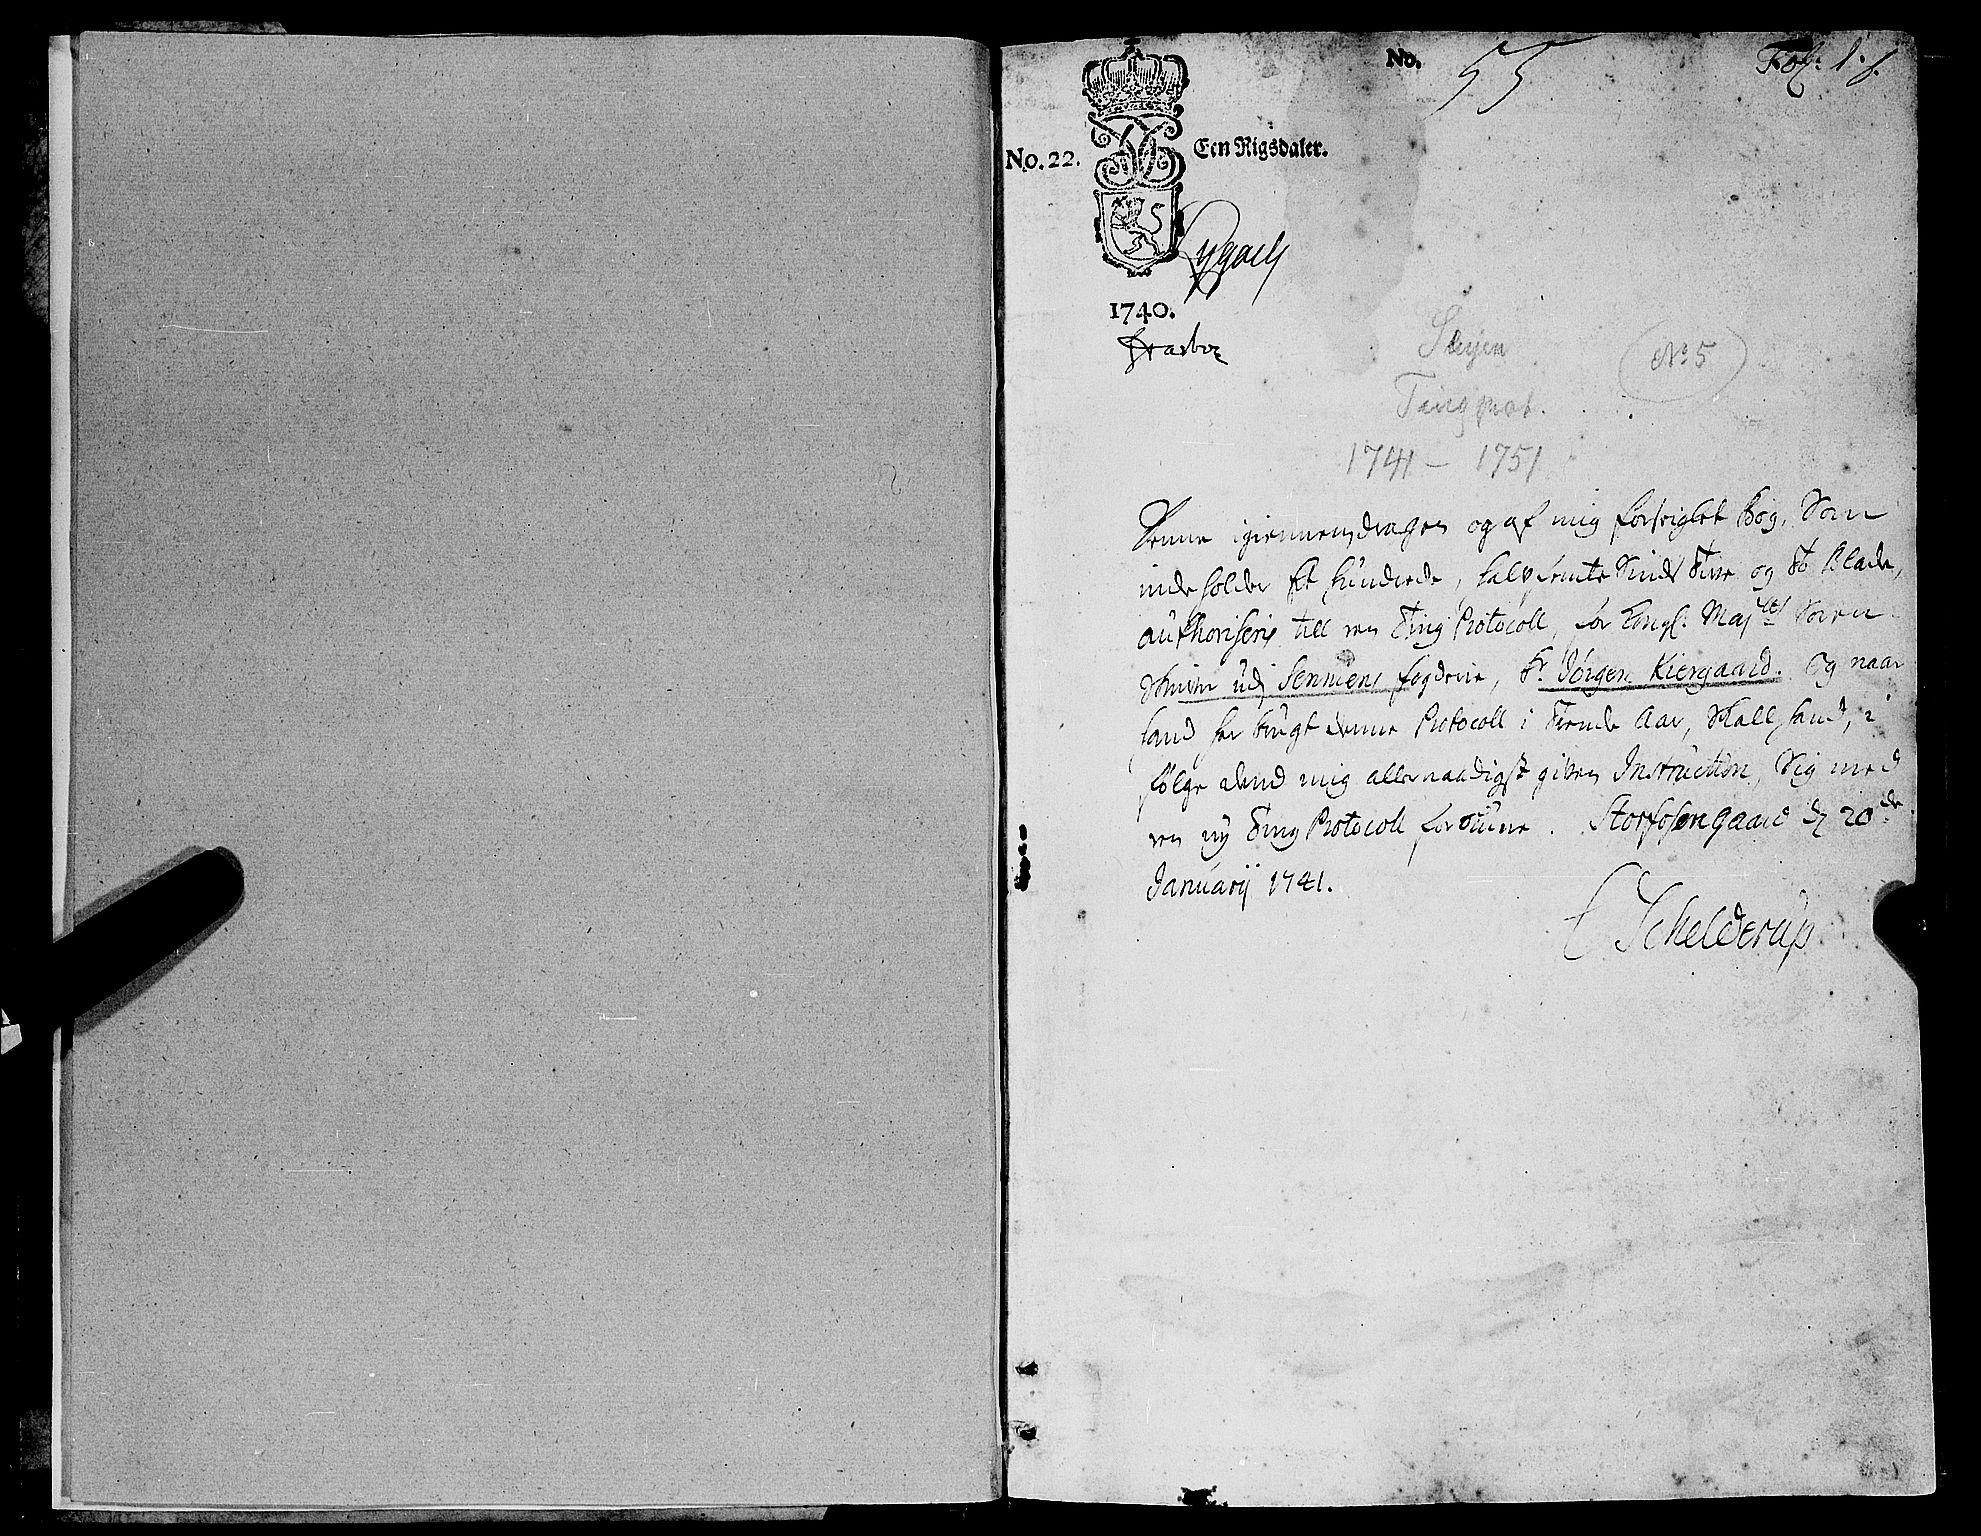 No. 55
Fol: 1.
No. 22.
Een Rigsdaler.
1740.
Senjen
No 5
Tingprot.
1741 – 1751
Denne igiennemdragen og af mig forseiglet Bog, Som
indeholder Et hundrede, halvfemte Sinds Tive og To Blade,
authoriseris till een Ting Protocoll, for Kongl: Majts Soren
Skriver udj Senniens fogderie, Sr. Jörgen Kiergaard. Og naar
hand har brugt denne Protocoll i Tiende Aar, Skall hand, i
følge dend mig allernaadigst given Instruction, Sig med
een ny Ting Protocoll forsiune. Storfosen Gaard d. 20de
Januarij 1741.
Schelderup